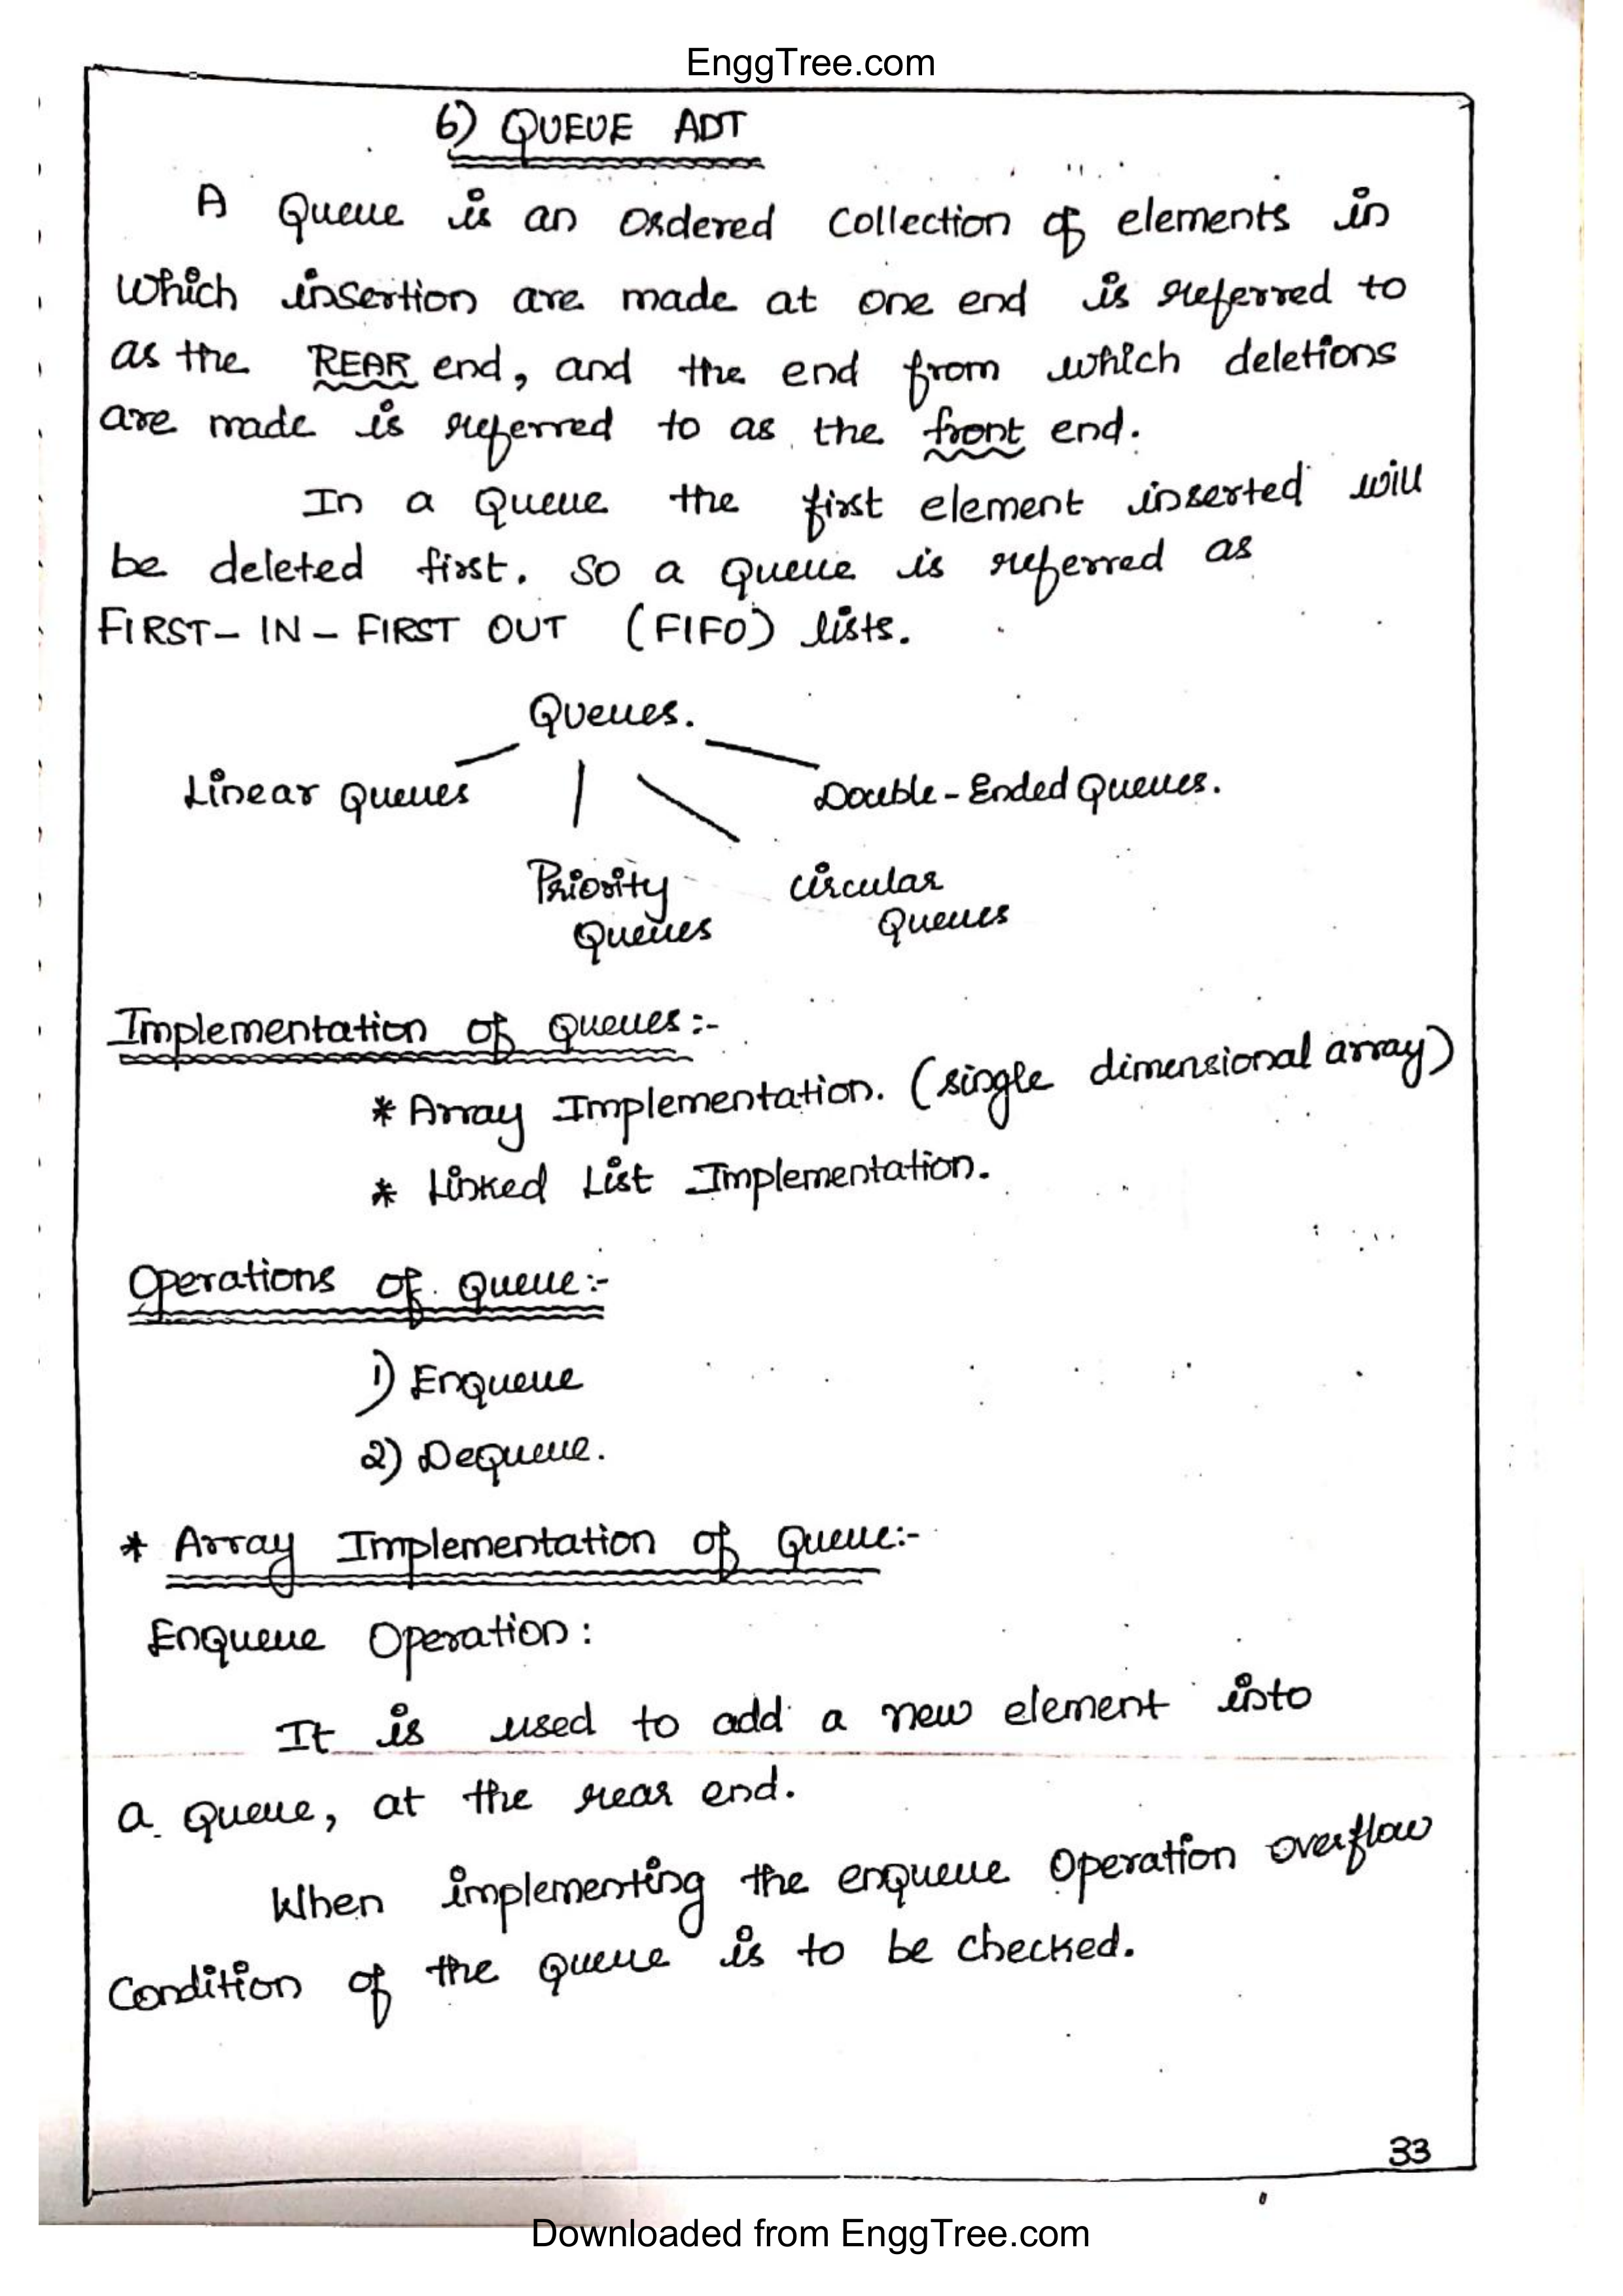 EnggTree.com
6) QUEUE ADT
A Queue is an Ordered Collection of elements in
which insertion are made at one end is referred to
as the REAR end, and the end from which deletions
are made is referred to as the front end.
In a Queue the first element inserted will
be deleted first. So a Queue is referred as
FIRST-IN-FIRST OUT (FIFO) lists.
Queues.
Linear Queues
Double-Ended Queues.
Priority Circular
Queues Queues
Implementation of Queues:-
* Array Implementation. (single dimensional array)
* Linked List Implementation.
Operations of Queue:-
1) Enqueue
2) Dequeue.
* Array Implementation of Queue:-
Enqueue Operation:
It is used to add a new element into
a Queue, at the rear end.
When implementing the enqueue Operation overflow
Condition of the queue is to be checked.
33
Downloaded from EnggTree.com